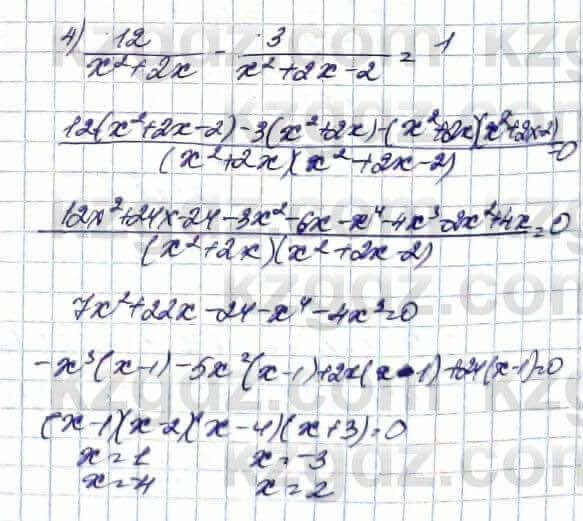 4) 12/(x²+2x) - 3/(x²+2x-2) = 1
(12(x²+2x-2)-3(x²+2x)-(x²+2x)(x²+2x-2))/((x²+2x)(x²+2x-2)) = 0
(12x²+24x-24-3x²-6x-x⁴-4x³-2x²+4x)/((x²+2x)(x²+2x-2)) = 0
7x²+22x-24-x⁴-4x³=0
-x³(x-1)-5x²(x-1)+2x(x-1)+24(x-1)=0
(x-1)(x-2)(x-4)(x+3)=0
x=1 x=-3
x=-4 x=2